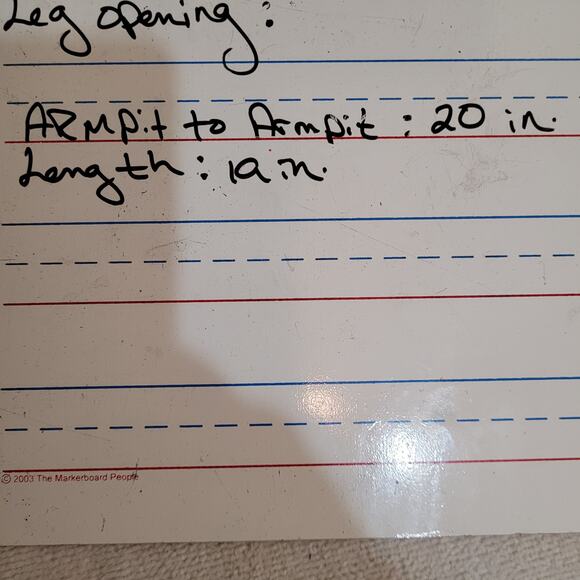 Leg opening:
ARMPit to Armpit: 20 in.
Length: 19 in.
© 2003 The Markerboard People